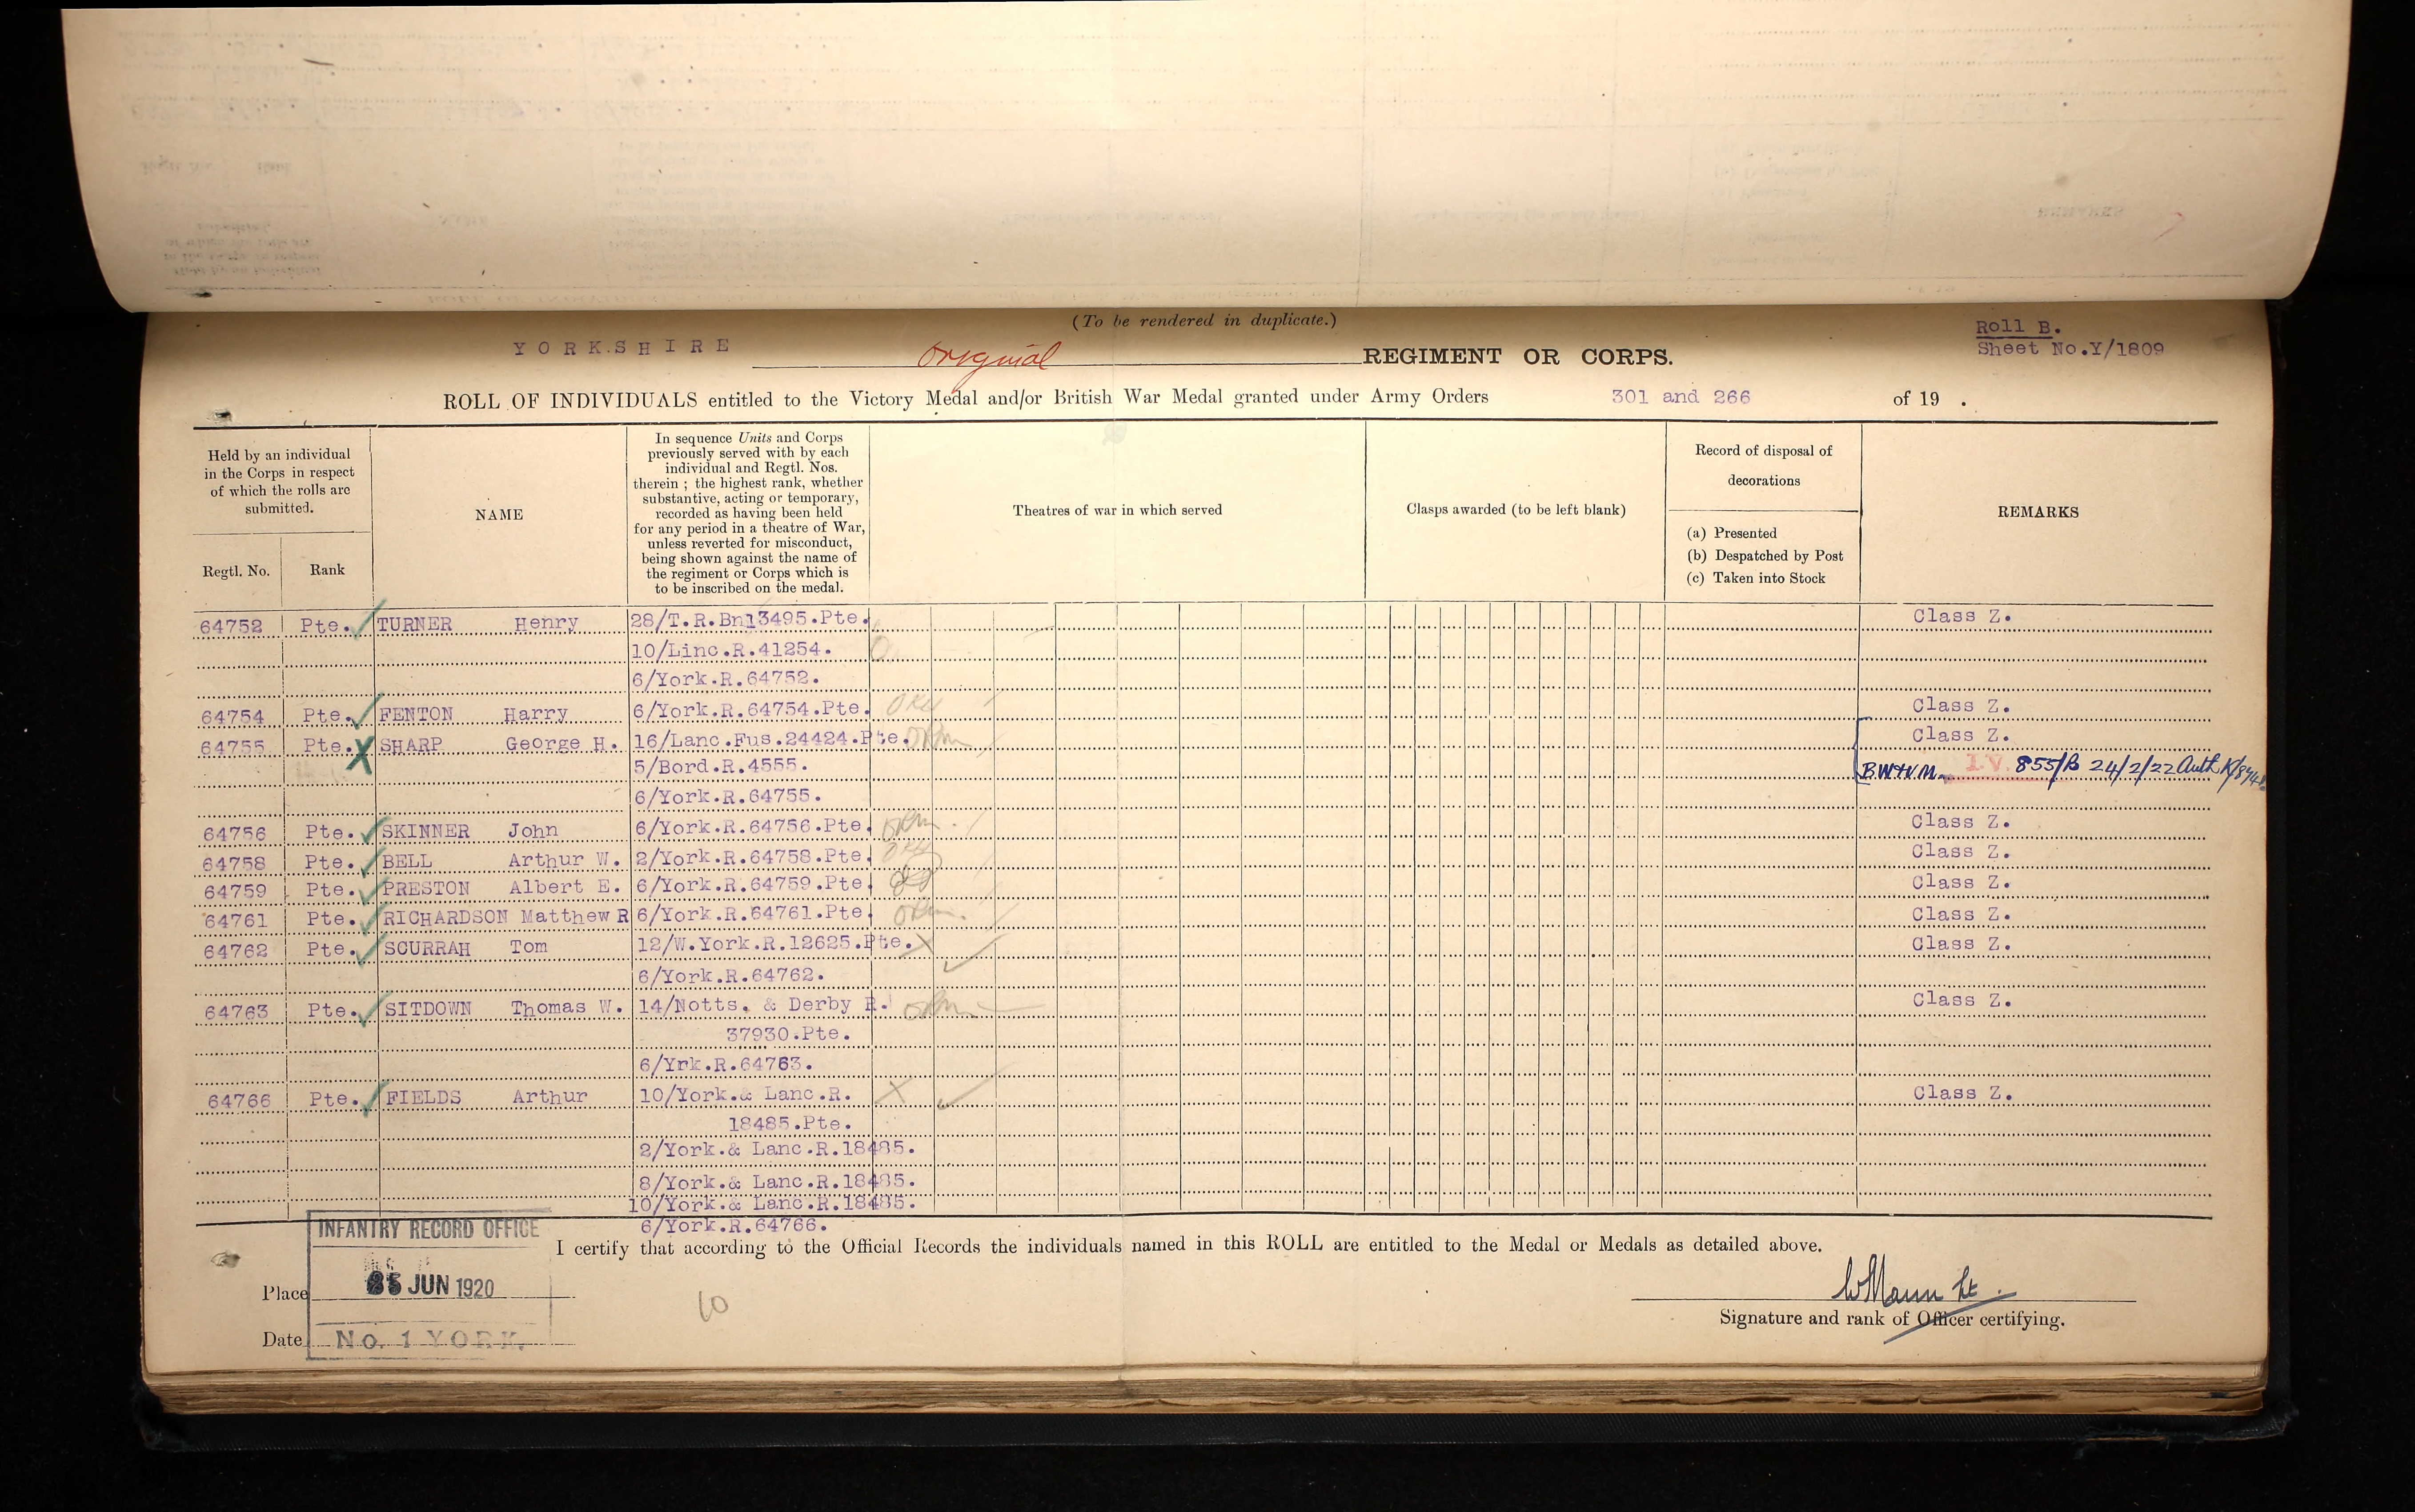 (To be rendered in duplicate.)
Roll B.
YORKSHIRE Original REGIMENT OR CORPS.
Sheet No.Y/1809
ROLL OF INDIVIDUALS entitled to the Victory Medal and/or British War Medal granted under Army Orders 301 and 266 of 19 .
Held by an individual
in the Corps in respect
of which the rolls are
submitted.
Regtl. No.
Rank
NAME
In sequence Units and Corps
previously served with by each
individual and Regtl. Nos.
therein ; the highest rank, whether
substantive, acting or temporary,
recorded as having been held
for any period in a theatre of War,
unless reverted for misconduct,
being shown against the name of
the regiment or Corps which is
to be inscribed on the medal.
Theatres of war in which served
Clasps awarded (to be left blank)
Record of disposal of
decorations
(a) Presented
(b) Despatched by Post
(c) Taken into Stock
REMARKS
64752 Pte. TURNER Henry 28/T.R.Bn13495.Pte. Class Z.
10/Linc.R.41254.
6/York.R.64752.
64754 Pte. FENTON Harry 6/York.R.64754.Pte. Class Z.
64755 Pte. X SHARP George H. 16/Lanc.Fus.24424.Pte. Class Z.
5/Bord.R.4555. BW&VM. I.V. 855/B 24/2/22 Auth
6/York.R.64755.
64756 Pte. SKINNER John 6/York.R.64756.Pte. Class Z.
64758 Pte. BELL Arthur W. 2/York.R.64758.Pte. Class Z.
64759 Pte. PRESTON Albert E. 6/York.R.64759.Pte. Class Z.
64761 Pte. RICHARDSON Matthew R 6/York.R.64761.Pte. Class Z.
64762 Pte. SCURRAH Tom 12/W.York.R.12625.Pte. X Class Z.
6/York.R.64762.
64763 Pte. SITDOWN Thomas W. 14/Notts. & Derby R. Class Z.
37930.Pte.
6/Yrk.R.64763.
64766 Pte. FIELDS Arthur 10/York.& Lanc.R. X Class Z.
18485.Pte.
2/York.& Lanc.R.18485.
8/York.& Lanc.R.18485.
10/York.& Lanc.R.18485.
6/York.R.64766.
INFANTRY RECORD OFFICE
I certify that according to the Official Records the individuals named in this ROLL are entitled to the Medal or Medals as detailed above.
Place JUN 1920
10
W Mann Lt.
Signature and rank of Officer certifying.
Date No. 1 YORK.